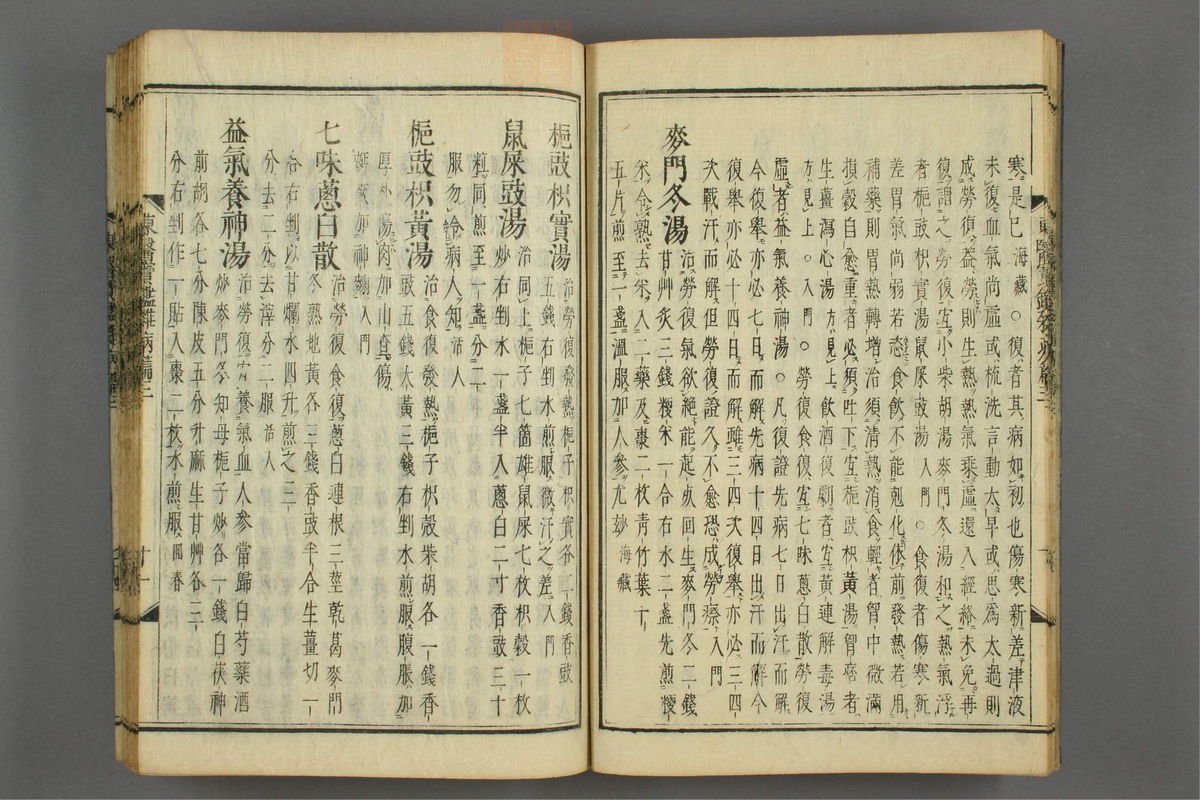 寒是已 海藏 ○復者其病如初也傷寒新差津液
未復血氣尚虛或梳洗言動太早或思爲太過則
成勞復盖勞則生熱熱氣乘虛還入經絡未免再
復謂之勞復宜小柴胡湯麥門冬湯和之熱氣浮
者梔豉枳實湯鼠屎豉湯 入門 ○食復者傷寒新
差胃氣尚弱若恣食飲不能剋化依前發熱若用
補藥則胃熱轉增治須清熱消食輕者胷中微滿
損穀自愈重者必須吐下宜梔豉枳黃湯胷痞者
生薑瀉心湯 方見上 飲酒復劇者宜黃連解毒湯
方見上 ○ 入門 ○勞復食復宜七味蔥白散勞復
虛者益氣養神湯○凡復證先病七日出汗而解
今復舉亦必七日而解先病十四日出汗而解今
復舉亦必十四日而解雖三四次復舉亦必三四
次戰汗而解但勞復證久不愈恐成勞瘵 入門
麥門冬湯 治勞復氣欲絕能起死回生麥門冬二錢
甘艸炙三錢粳米一合右水二盞先煎粳
米令熟去米入二藥及棗二枚靑竹葉十
五片煎至一盞溫服加人參尤妙 海藏
梔豉枳實湯 治勞復發熱梔子枳實各二錢香豉
五錢右剉水煎服微汗之差 入門
鼠屎豉湯 治同上梔子七箇雄鼠屎七枚枳殼一枚
炒右剉水一盞半入蔥白二寸香豉三十
粒同煎至一盞分二
服勿令病人知 活人
梔豉枳黃湯 治食復發熱梔子枳殼柴胡各一錢香
豉五錢大黃三錢右剉水煎服腹脹加
厚朴傷肉加山查傷
麪飯加神麴 入門
七味蔥白散 治勞復食復蔥白連根三莖乾葛麥門
冬熟地黃各三錢香豉半合生薑切一
合右剉以甘爛水四升煎之三
分去二分去滓分二服 活人
益氣養神湯 治勞復安養氣血人參當歸白芍藥酒
炒麥門冬知母梔子炒各一錢白茯神
前胡各七分陳皮五分升麻生甘艸各三
分右剉作一貼入棗二枚水煎服 回春
東醫寶鑑雜病篇三